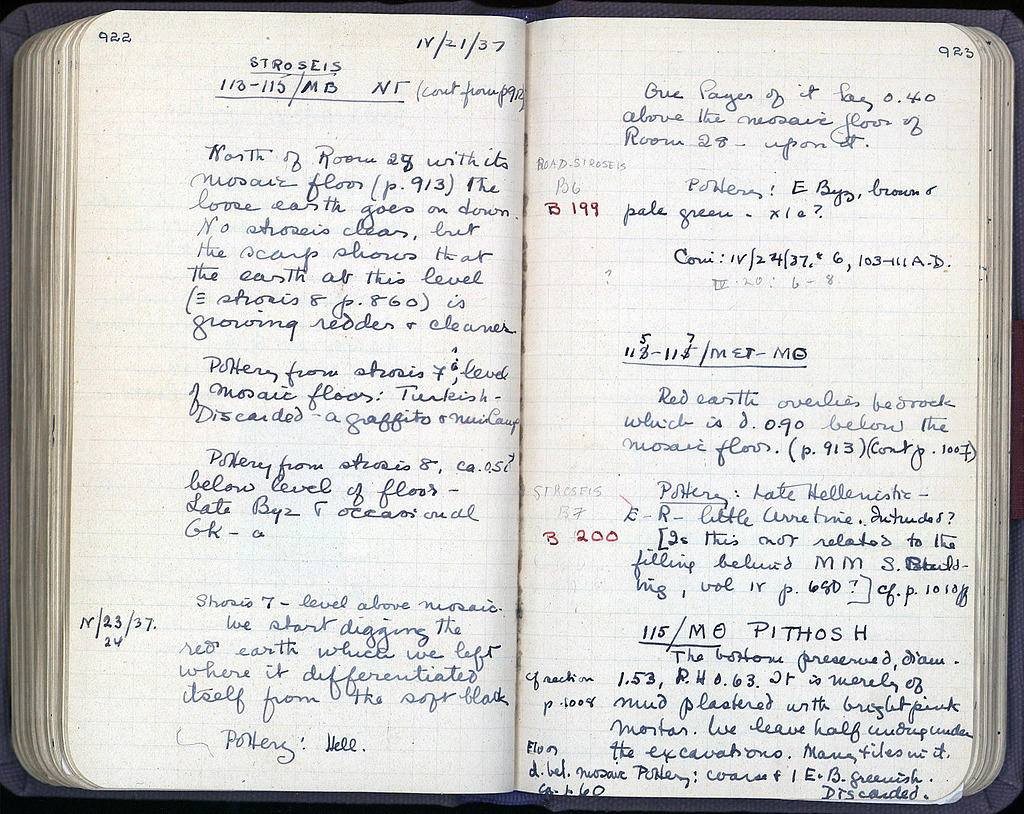 922
IV/21/37
STROSEIS
113-115/MB NT (cont from p 912)
North of Room 28 with its
mosaic floor (p. 913) the
loose earth goes on down.
No strosis clear, but
the scarp shows that
the earth at this level
(≡ strosis 8 p. 860) is
growing redder & cleaner.
Pottery from strosis 7, level
of mosaic floors: Turkish-
Discarded - a graffito &
Pottery from strosis 8, ca. 0.50
below level of floor -
Late Byz & occasional
Gk - a
IV/23/37.
24
Strosis 7 - level above mosaic.
We start digging the
red earth which we left
where it differentiated
itself from the soft black
Pottery: Hell.
923
One layer of it lay 0.40
above the mosaic floor of
Room 28 - upon it.
ROAD-STROSEIS
B6
B 199
Pottery: E Byz, brown &
pale green -
Coni: IV/24/37. # 6, 103-111 A.D.
? IV. 20: 6-8
115-117/MET-MΘ
Red earth overlies bedrock
which is d. 0.90 below the
mosaic floor. (p. 913) (Cont p. 1007)
STROSEIS
B7
B 200
Pottery: Late Hellenistic -
E-R- little Arretine. Intruded?
[Is this not related to the
filling behind MM S. Build-
ing, vol IV p. 680?] cf. p. 1010ff
115/MΘ PITHOS H
The bottom preserved, diam.
1.53, P.H 0.63. It is merely of
cf section
p. 1008
mud plastered with bright pink
mortar. We leave half undug under
the excavations. Many tiles in it.
Floor
d. bel. mosaic
ca. 1.60
Pottery: coarse & 1 E.B. greenish.
Discarded.